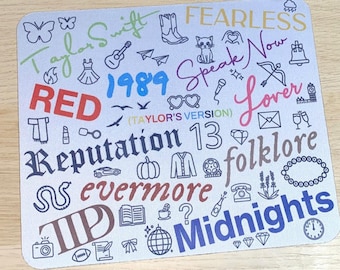 FEARLESS
Taylor Swift
Speak Now
1989
RED
(TAYLOR'S VERSION)
Lover
Reputation
13
folklore
evermore
TTPD
Midnights